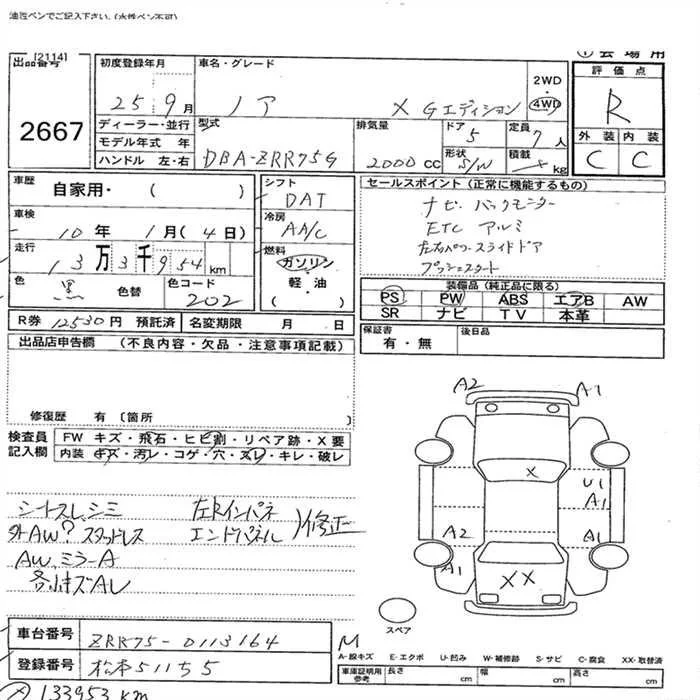 油性ペンでご記入下さい。(水性ペン不可)
出品番号 [2114]
2667
初度登録年月
25年 9月
車名・グレード
ノア X Gエディション
2WD
・
4WD
① 会場用
評価点
R
外装 内装
C C
ディーラー・並行
モデル年式 年
ハンドル 左・右
型式
DBA-ZRR75G
排気量
2000 CC
ドア 5
形状 S/W
定員 7 人
積載 kg
車歴 自家用・( )
車検 10年 1月(4日)
走行 13万3千954km
色 黒 色替
色コード 202
シフト DAT
冷房 AA/C
燃料
ガソリン
軽・油
( )
セールスポイント(正常に機能するもの)
ナビ バックモニター
ETC アルミ
左右パワースライドドア
プッシュスタート
装備品(純正品に限る)
PS PW ABS エアB AW
SR ナビ TV 本革
R券 12530円 預託済 名変期限 月 日
保証書
有・無
後日品
出品店申告欄 (不良内容・欠品・注意事項記載)
修復歴 有 〔箇所 〕
検査員記入欄
FW キズ・飛石・ヒビ割・リペア跡・X要
内装 キズ・汚レ・コゲ・穴・スレ・キレ・破レ
シートスレ、シミ
外AW? スタッドレス
AW、ミラーA
各小キズAL
左Rインパネ
エンドパネル )修正
A2 A1
X
U1
A1
A2 A1
A1
XX
スペア
車台番号 ZRR75-0113164
登録番号 松本511ち5
M
A-線キズ E-エクボ U-凹み W-補修跡 S-サビ C-腐食 XX-取替済
車庫証明用参考 長さ cm 幅 cm 高さ cm
133953km